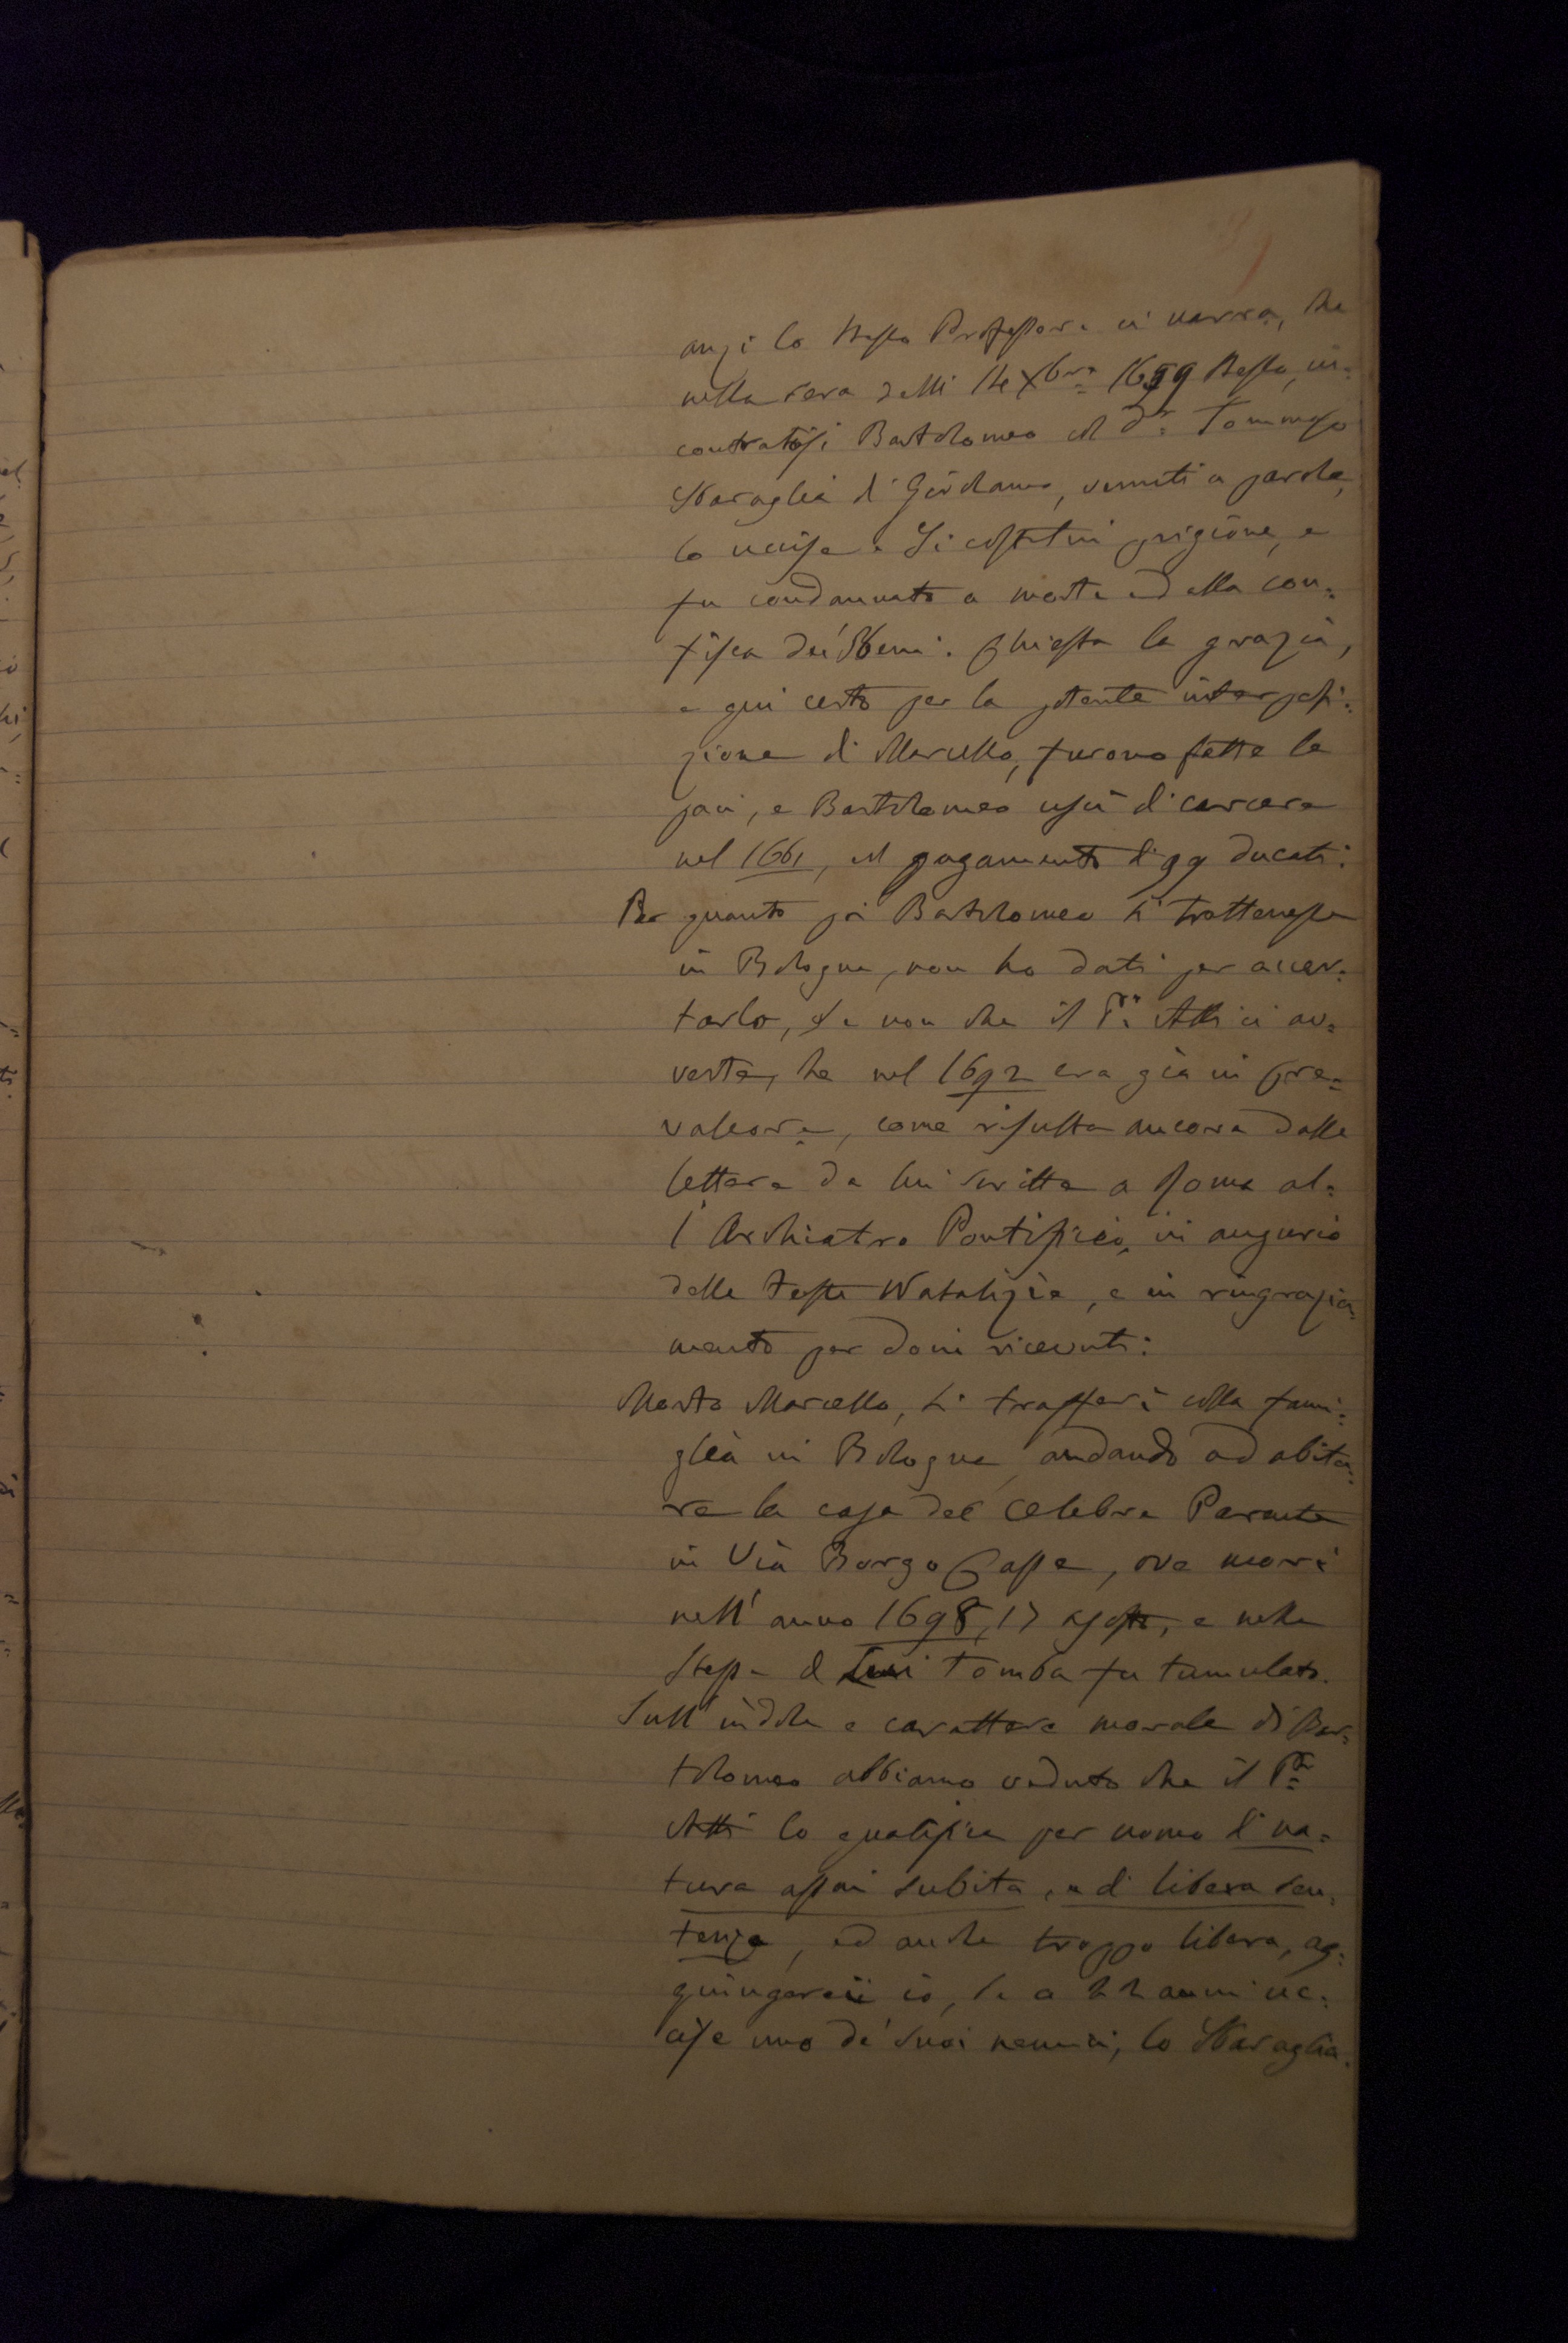 anzi lo stesso Professore ci narra, che
nella sera delli 14 Xbre 1659 stesso, in=
contratosi Bartolomeo col Dr. Tommaso
Sbaraglia di Girolamo, venuti a parole,
lo uccise. Si costituì prigione, e
fu condannato a morte ed alla con=
fisca dei beni. Chiesta la grazia,
e qui certo per la potente interposi=
zione di Marcello, furono fatte le
paci, e Bartolomeo uscì di carcere
nel 1661, col pagamento di 99 ducati:
Per quanto poi Bartolomeo si trattenesse
in Bologna, non ho dati per accer=
tarlo, se non che il Pr. Atti ci av=
verte, che nel 1692 era già in Cre=
valcore, come risulta ancora dalle
lettere da lui scritte a Roma al=
l'Archiatro Pontificio, in augurio
delle feste Natalizie, e in ringrazia=
mento per doni ricevuti:
Morto Marcello, si trasferì colla fami=
glia in Bologna, andando ad abita=
re la casa del celebre Parente
in Via Borgo Casse, ove morì
nell'anno 1698, 17 agosto, e nella
stessa di lui tomba fu tumulato.
Sull'indole e carattere morale di Bar=
tolomeo abbiamo veduto che il Pr.
Atti lo qualifica per uomo di na=
tura assai subita, e di libera sen=
tenza, ed anche troppo libera, ag=
giungerei io, se a 22 anni uc=
cise uno de' suoi nemici, lo Sbaraglia.